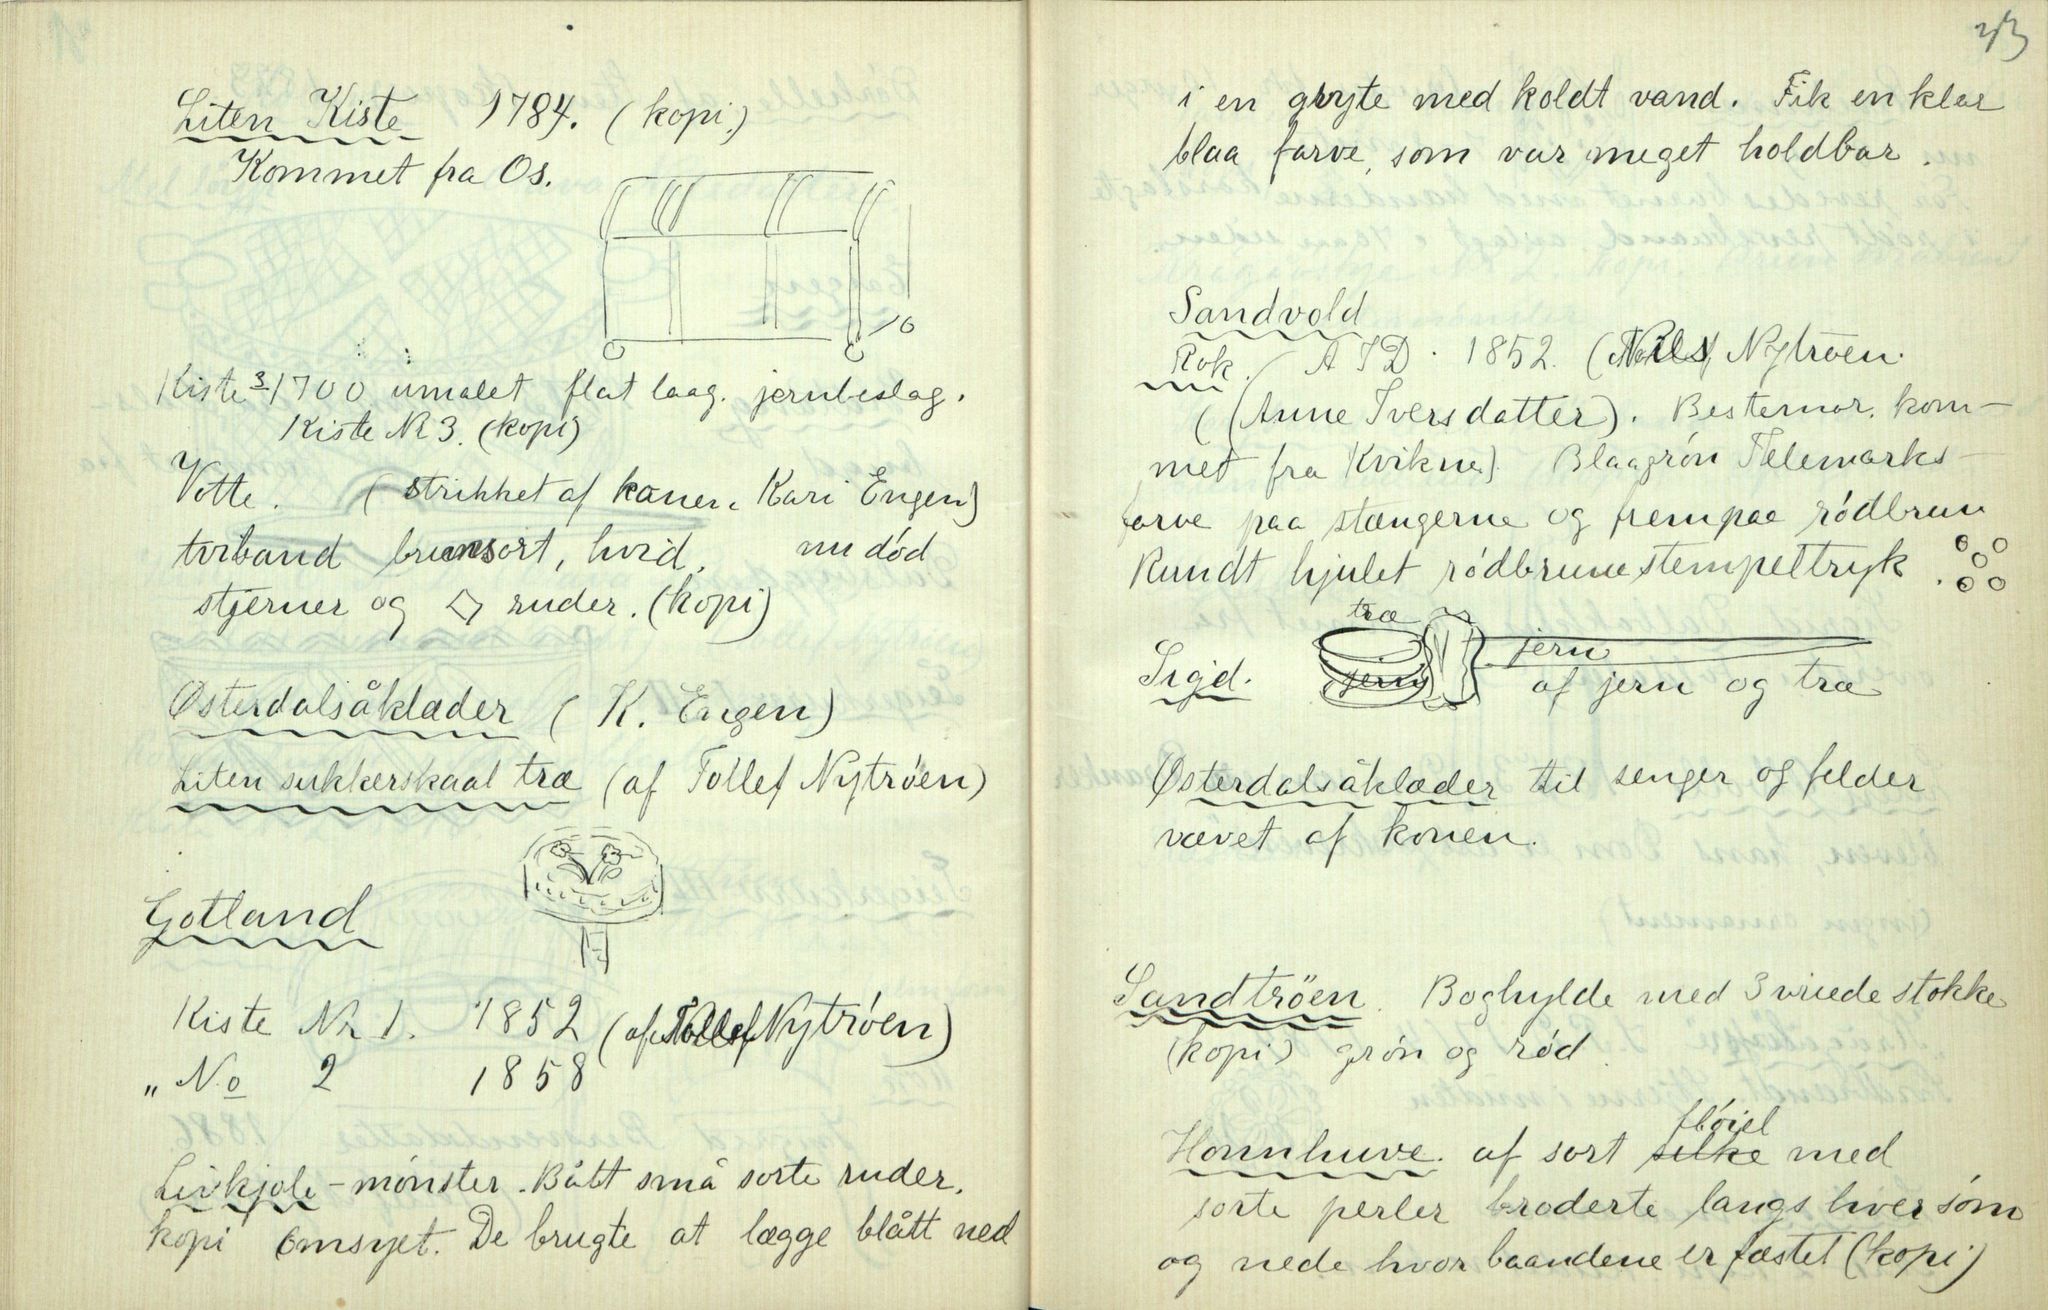 Liten Kiste 1784. (kopi.)
Kommet fra Os.
Kiste 3 1700 umalet flat laag. jernbeslag.
Kiste NR 3. (kopi)
Votte. (strikket af konen. Kari Engen)
tviband brunsort, hvid. nu död
stjerner og ruder. (kopi)
Østerdalsåklæder (K. Engen)
Liten sukkerskaal træ (af Tollef Nytrøen)
Gotland
Kiste Nr 1. 1852 (af Tollef Nytrøen)
" No 2 1858
Livkjole-mønster. Blått små sorte ruder.
kopi omsyet. De brugte at lægge blått ned
33
i en gryte med koldt vand. Fik en klar
blaa farve, som var meget holdbar.
Sandvold
Rok. A I D. 1852. (Nils Nytrøen.
(Anne Iversdatter). Bestemor. kom-
met fra Kvikne). Blaagrön Telemarks-
farve paa stængerne og frempaa rödbrun
Rundt hjulet rödbrune stempeltryk.
træ
jern
jern
Sigd. af jern og træ
Østerdalsåklæder til senger og felder
vævet af konen.
Sandtröen. Boghylde med 3 vriede stokke
(kopi) grön og röd
flöiel
Honnhuve. af sort silke med
sorte perler broderte langs hver söm
og nede hvor baandene er fæstet (kopi)